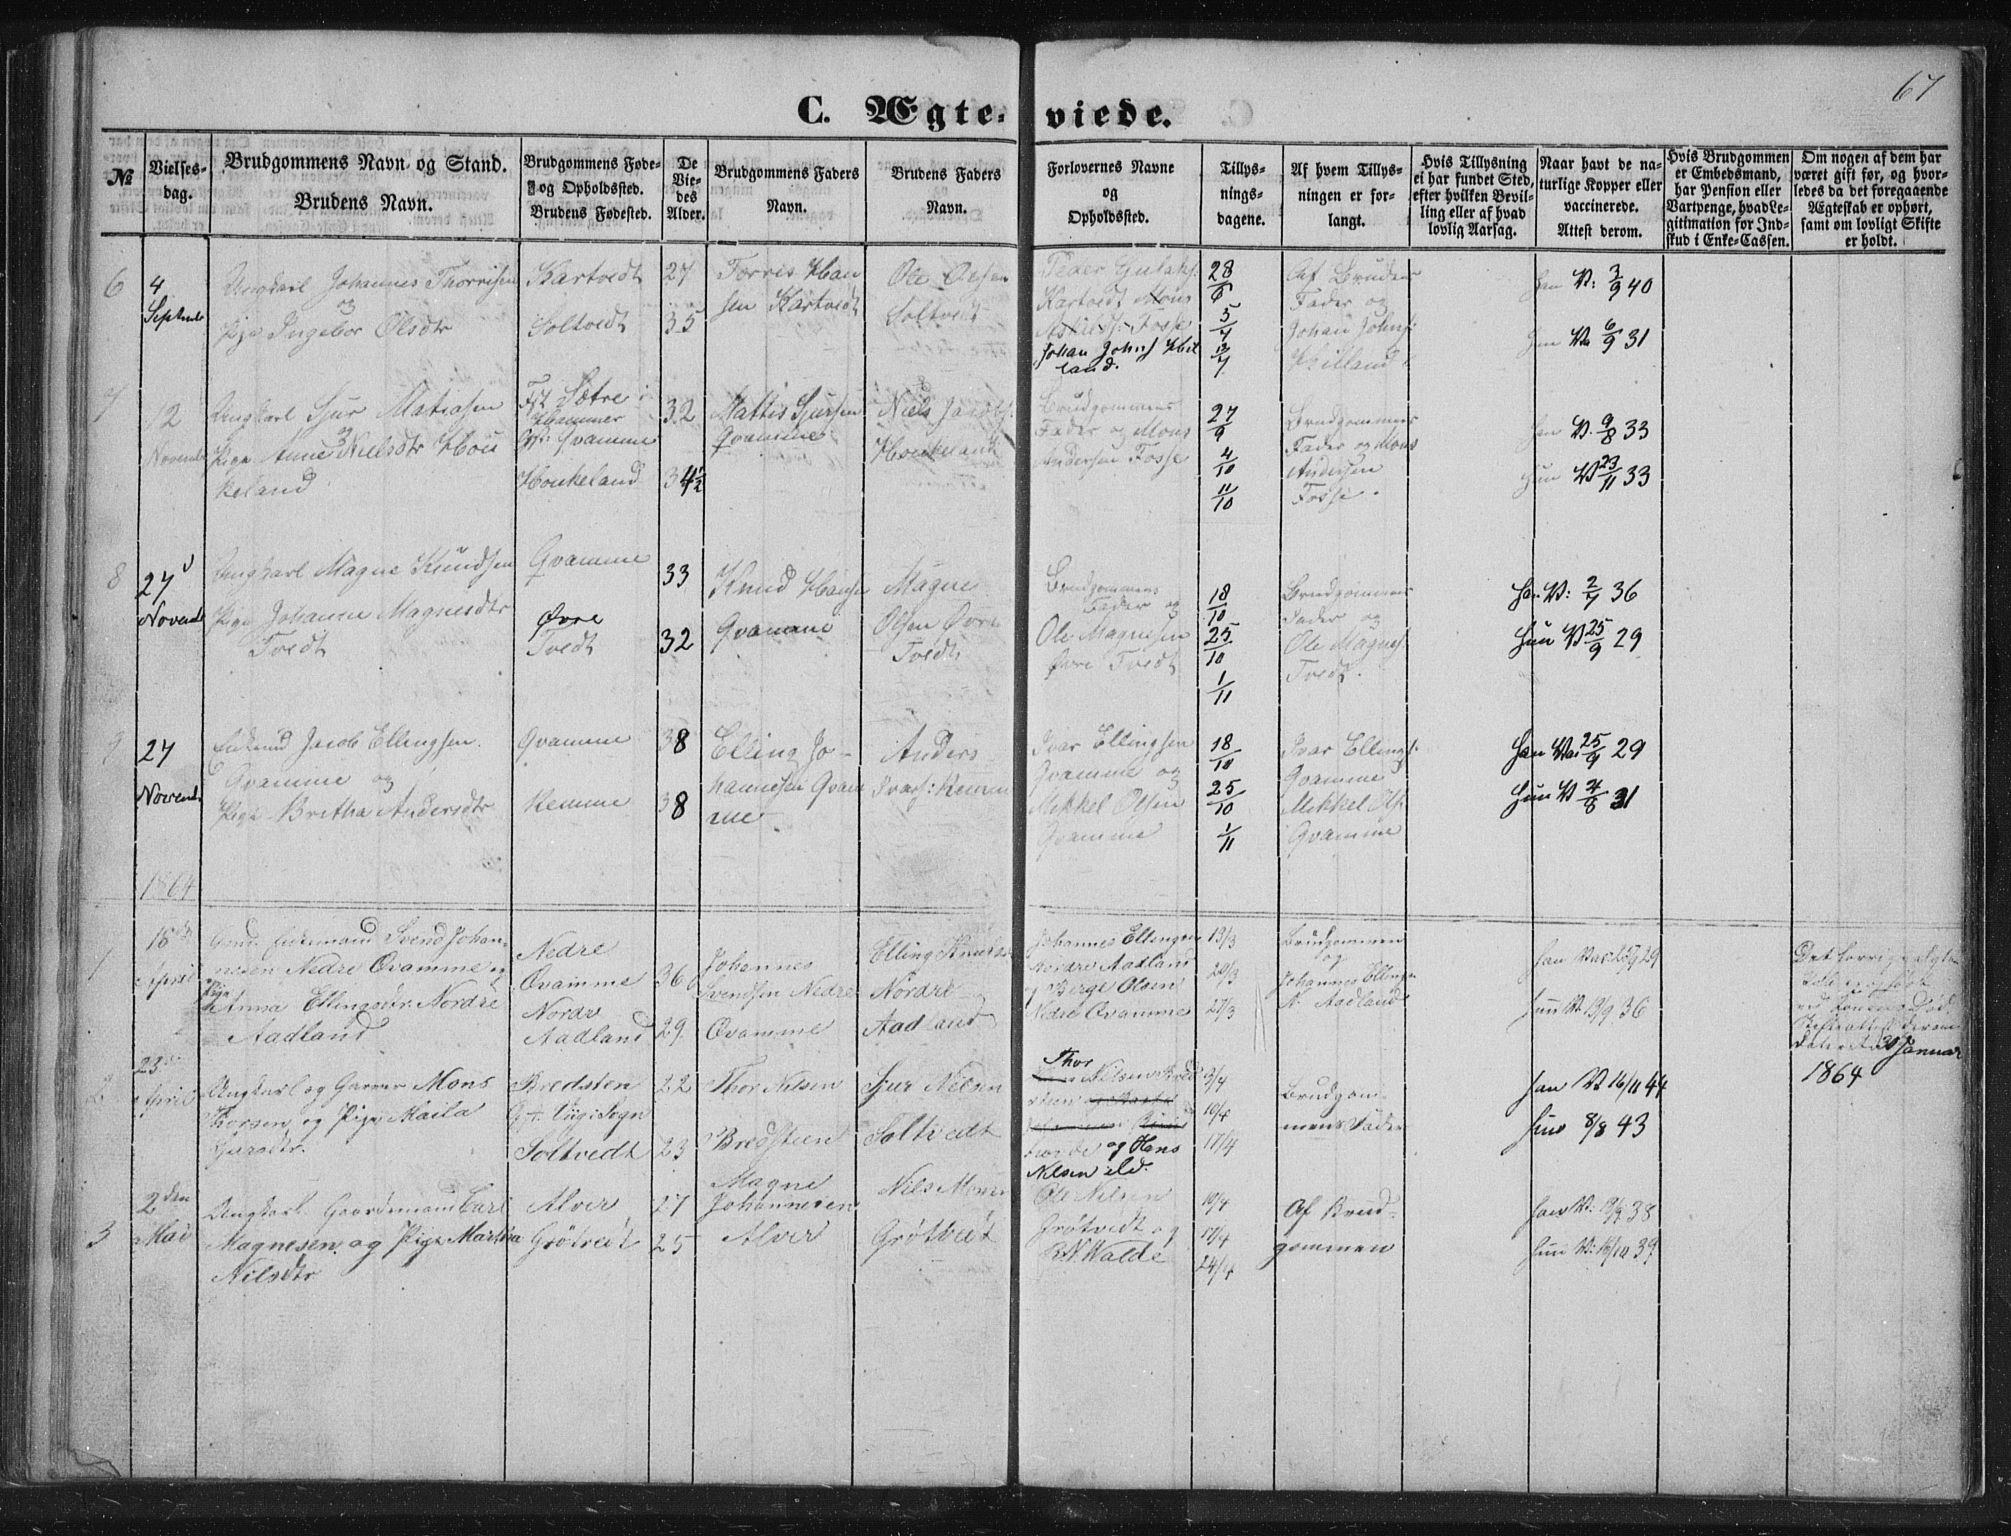 67
C. Ægte-viede.
№
Vielses-
dag.
Brudgommens Navn og Stand.
Brudens Navn.
Brudgommens Føde-
og Opholdssted.
Brudens Fødested.
De
Vie-
des
Alder.
Brudgommens Faders
Navn.
Brudens Faders
Navn.
Forlovernes Navne
og
Opholdssted.
Tillys-
nings-
dagene.
Af hvem Tillys-
ningen er for-
langt.
Hvis Tillysning
ei har fundet Sted,
efter hvilken Bevil-
ling eller af hvad
lovlig Aarsag.
Naar havt de na-
turlige Kopper eller
vaccinerede.
Attest derom.
Hvis Brudgommen
er Embedsmand,
har Pension eller
Vartpenge, hvad Le-
gitimation for Ind-
skud i Enke-Cassen.
Om nogen af dem har
været gift før, og hvor-
ledes da det foregaaende
Ægteskab er ophørt,
samt om lovligt Skifte
er holdt.
6
4
Septemb
Ungkarl Johannes Thorrisen
og
Pige Ingebor Olsdtr
Kartvedt
Soltvedt
27
35
Torris Han
sen Kartvedt
Ole Olsen
Soltvedt
Peder
Kartvedt Mons
Fosse
Johan Johns Hil
land.
28/6
5/7
12/7
Af Brudens
Fader og
Johan Johns:
Hilland
han V: 3/9 40
hun V 6/9 31
7
12
Novemb
Ungkarl Sjur Matiasen
og
Pige Anne Nielsdtr Hou
keland
Sætre i
Hammer
Qvamme
Houkeland
32
34½
Mattis Sjursen
Qvamme
Niels Jacobs:
Houkeland
Brudgommens
Fader og Mons
Andersen Fosse
27/9
4/10
11/10
Brudgommens
Fader og Mons
Andersen
Fosse.
han V. 9/8 33
hun V 23/11 33
8
27
Novemb
Ungkarl Magne Knudsen
Pige Johanne Magnesdtr
Tvedt
Qvamme
Øvre
Tvedt
33
32
Knud Hansen
Qvamme
Magne
Olsen Øvre
Tvedt
Brudgommens
Fader og
Ole Magnesen
Øvre Tvedt
18/10
25/10
1/11
Brudgommens
Fader og
Ole Magnes:
Tvedt.
han V: 2/7 36
hun V 25/9 29
9
27
Novemb
Enkemd Jacob Ellingsen
Qvamme og
Pige Britha Andersdtr
Qvamme
Remme
38
38
Elling Jo-
hannesen Qvam
me
Anders
Ivars: Remme
Ivar Ellingsen
Qvamme og
Mikkel Olsen
Qvamme
18/10
25/10
1/11
Ivar Ellings:
Qvamme
Mikkel Ols:
Qvamme
han Va: 25/9 29
hun V 4/8 31
1864
1
16de
April
Gmd. Enkemand Svend Johan-
nesen Nedre Qvamme og
Pige
Anna Ellingsdtr. Nordre
Aadland
Nedre
Qvamme
Nordr
Aadland
36
29.
Johannes
Svendsen Nedre
Qvamme
Elling Knudsen
Nordre
Aadland
Johannes Ellingsen
Nordre Aadland
og Børge Olsen
Nedre Qvamme
13/3
20/3
27/3
Brudgommen
og
Johannes Ellingsen
N. Aadland
hun V. 13/9 36
Januar
1864
2
23
April
Ungkarl og Garver Mons
Thorsen og Pige Maila
Sjursdtr.
Bredsten
Soltvedt
22
23
Thor Nilsen
Bredsteen
Sjur Nilsen
Soltvedt
Thor
Nilsen
og Hans
Nilsen ild.
3/4
10/4
17/4
Brudgom-
mens Fader
han V 16/11 44
hun 8/8 43
3
2den
Mai
Ungkarl Gaardmand Carl
Magnesen og Pige Martha
Nilsdtr
Alver
Grøtvedt
27
25
Magne
Johannesen
Alver
Nils Monsen
Grøtvedt
Ole Nilsen
Grøtvedt og
R. N. Walde
10/4
17/4
24/4
Af Brud-
gommen
hun V: 16/10 39